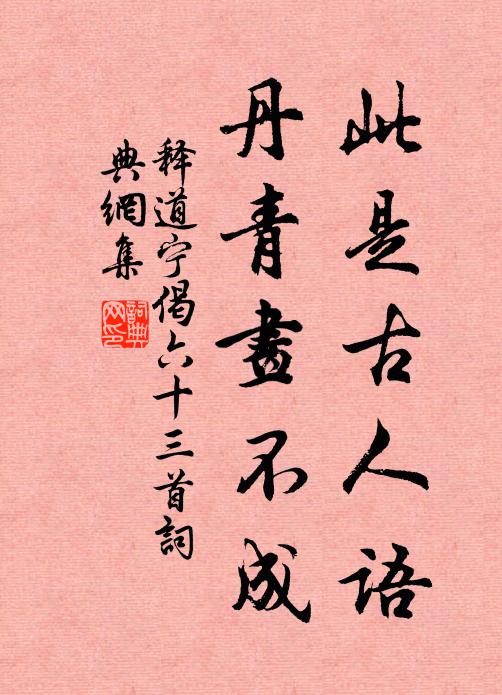 此是古人语
丹青畫不成
释道宁偈六十三首詞
典網集
詞典
网印